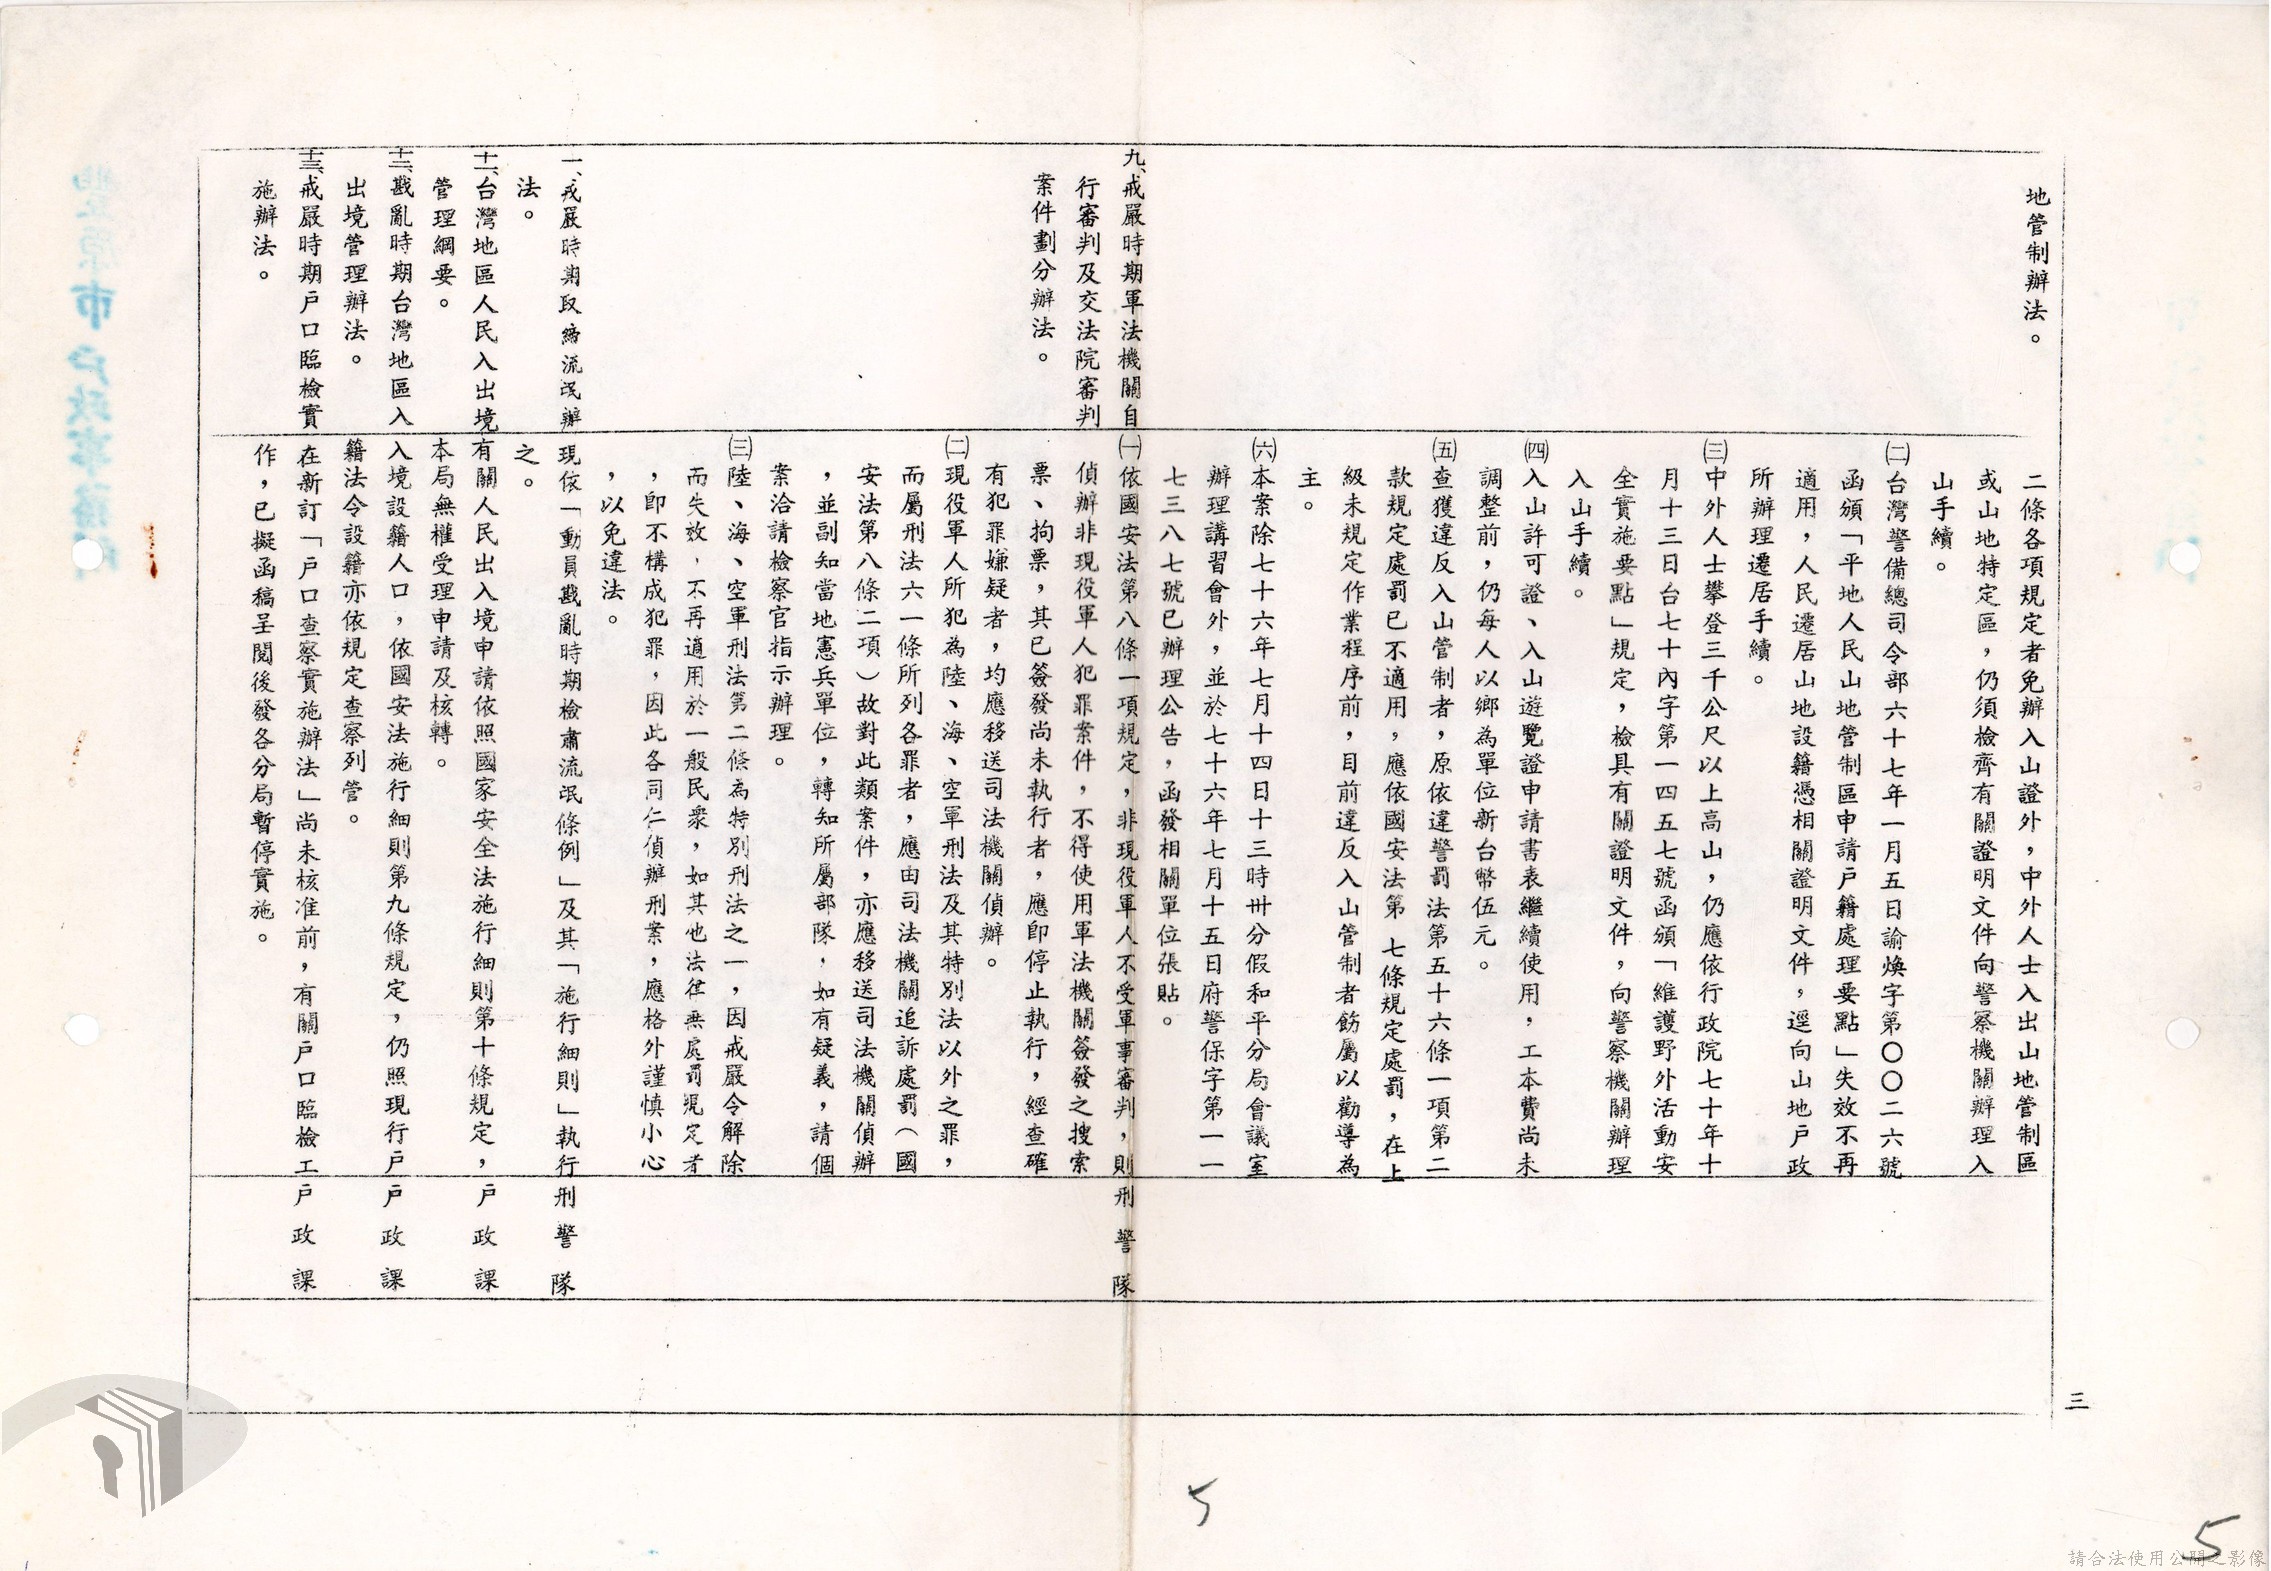 三
地管制辦法。
二條各項規定者免辦入山證外，中外人士入出山地管制區
或山地特定區，仍須檢齊有關證明文件向警察機關辦理入
山手續。
㈡台灣警備總司令部六十七年一月五日諭煥字第〇〇二六號
函頒「平地人民山地管制區申請戶籍處理要點」失效不再
適用，人民遷居山地設籍憑相關證明文件，逕向山地戶政
所辦理遷居手續。
㈢中外人士攀登三千公尺以上高山，仍應依行政院七十年十
月十三日台七十內字第一四五七號函頒「維護野外活動安
全實施要點」規定，檢具有關證明文件，向警察機關辦理
入山手續。
㈣入山許可證、入山遊覽證申請書表繼續使用，工本費尚未
調整前，仍每人以鄉為單位新台幣伍元。
㈤查獲違反入山管制者，原依違警罰法第五十六條一項第二
款規定處罰已不適用，應依國安法第七條規定處罰，在上
級未規定作業程序前，目前違反入山管制者飭屬以勸導為
主。
㈥本案除七十六年七月十四日十三時卅分假和平分局會議室
辦理講習會外，並於七十六年七月十五日府警保字第一一
七三八七號已辦理公告，函發相關單位張貼。
九、戒嚴時期軍法機關自
行審判及交法院審判
案件劃分辦法。
㈠依國安法第八條一項規定，非現役軍人不受軍事審判，則
偵辦非現役軍人犯罪案件，不得使用軍法機關簽發之搜索
票、拘票，其已簽發尚未執行者，應即停止執行，經查確
有犯罪嫌疑者，均應移送司法機關偵辦。
㈡現役軍人所犯為陸、海、空軍刑法及其特別法以外之罪，
而屬刑法六一條所列各罪者，應由司法機關追訴處罰（國
安法第八條二項）故對此類案件，亦應移送司法機關偵辦
，並副知當地憲兵單位，轉知所屬部隊，如有疑義，請個
案洽請檢察官指示辦理。
㈢陸、海、空軍刑法第二條為特別刑法之一，因戒嚴令解除
而失效，不再適用於一般民衆，如其他法律無處罰規定者
，即不構成犯罪，因此各同仁偵辦刑案，應格外謹慎小心
，以免違法。
刑警隊
一、戒嚴時期取締流氓辦
法。
現依「動員戡亂時期檢肅流氓條例」及其「施行細則」執行
之。
刑警隊
十一、台灣地區人民入出境
管理綱要。
有關人民出入境申請依照國家安全法施行細則第十條規定，
本局無權受理申請及核轉。
戶政課
十二、戡亂時期台灣地區入
出境管理辦法。
入境設籍人口，依國安法施行細則第九條規定，仍照現行戶
籍法令設籍亦依規定查察列管。
戶政課
十三、戒嚴時期戶口臨檢實
施辦法。
在新訂「戶口查察實施辦法」尚未核准前，有關戶口臨檢工
作，已擬函稿呈閱後發各分局暫停實施。
戶政課
5
5
請合法使用公開之影像